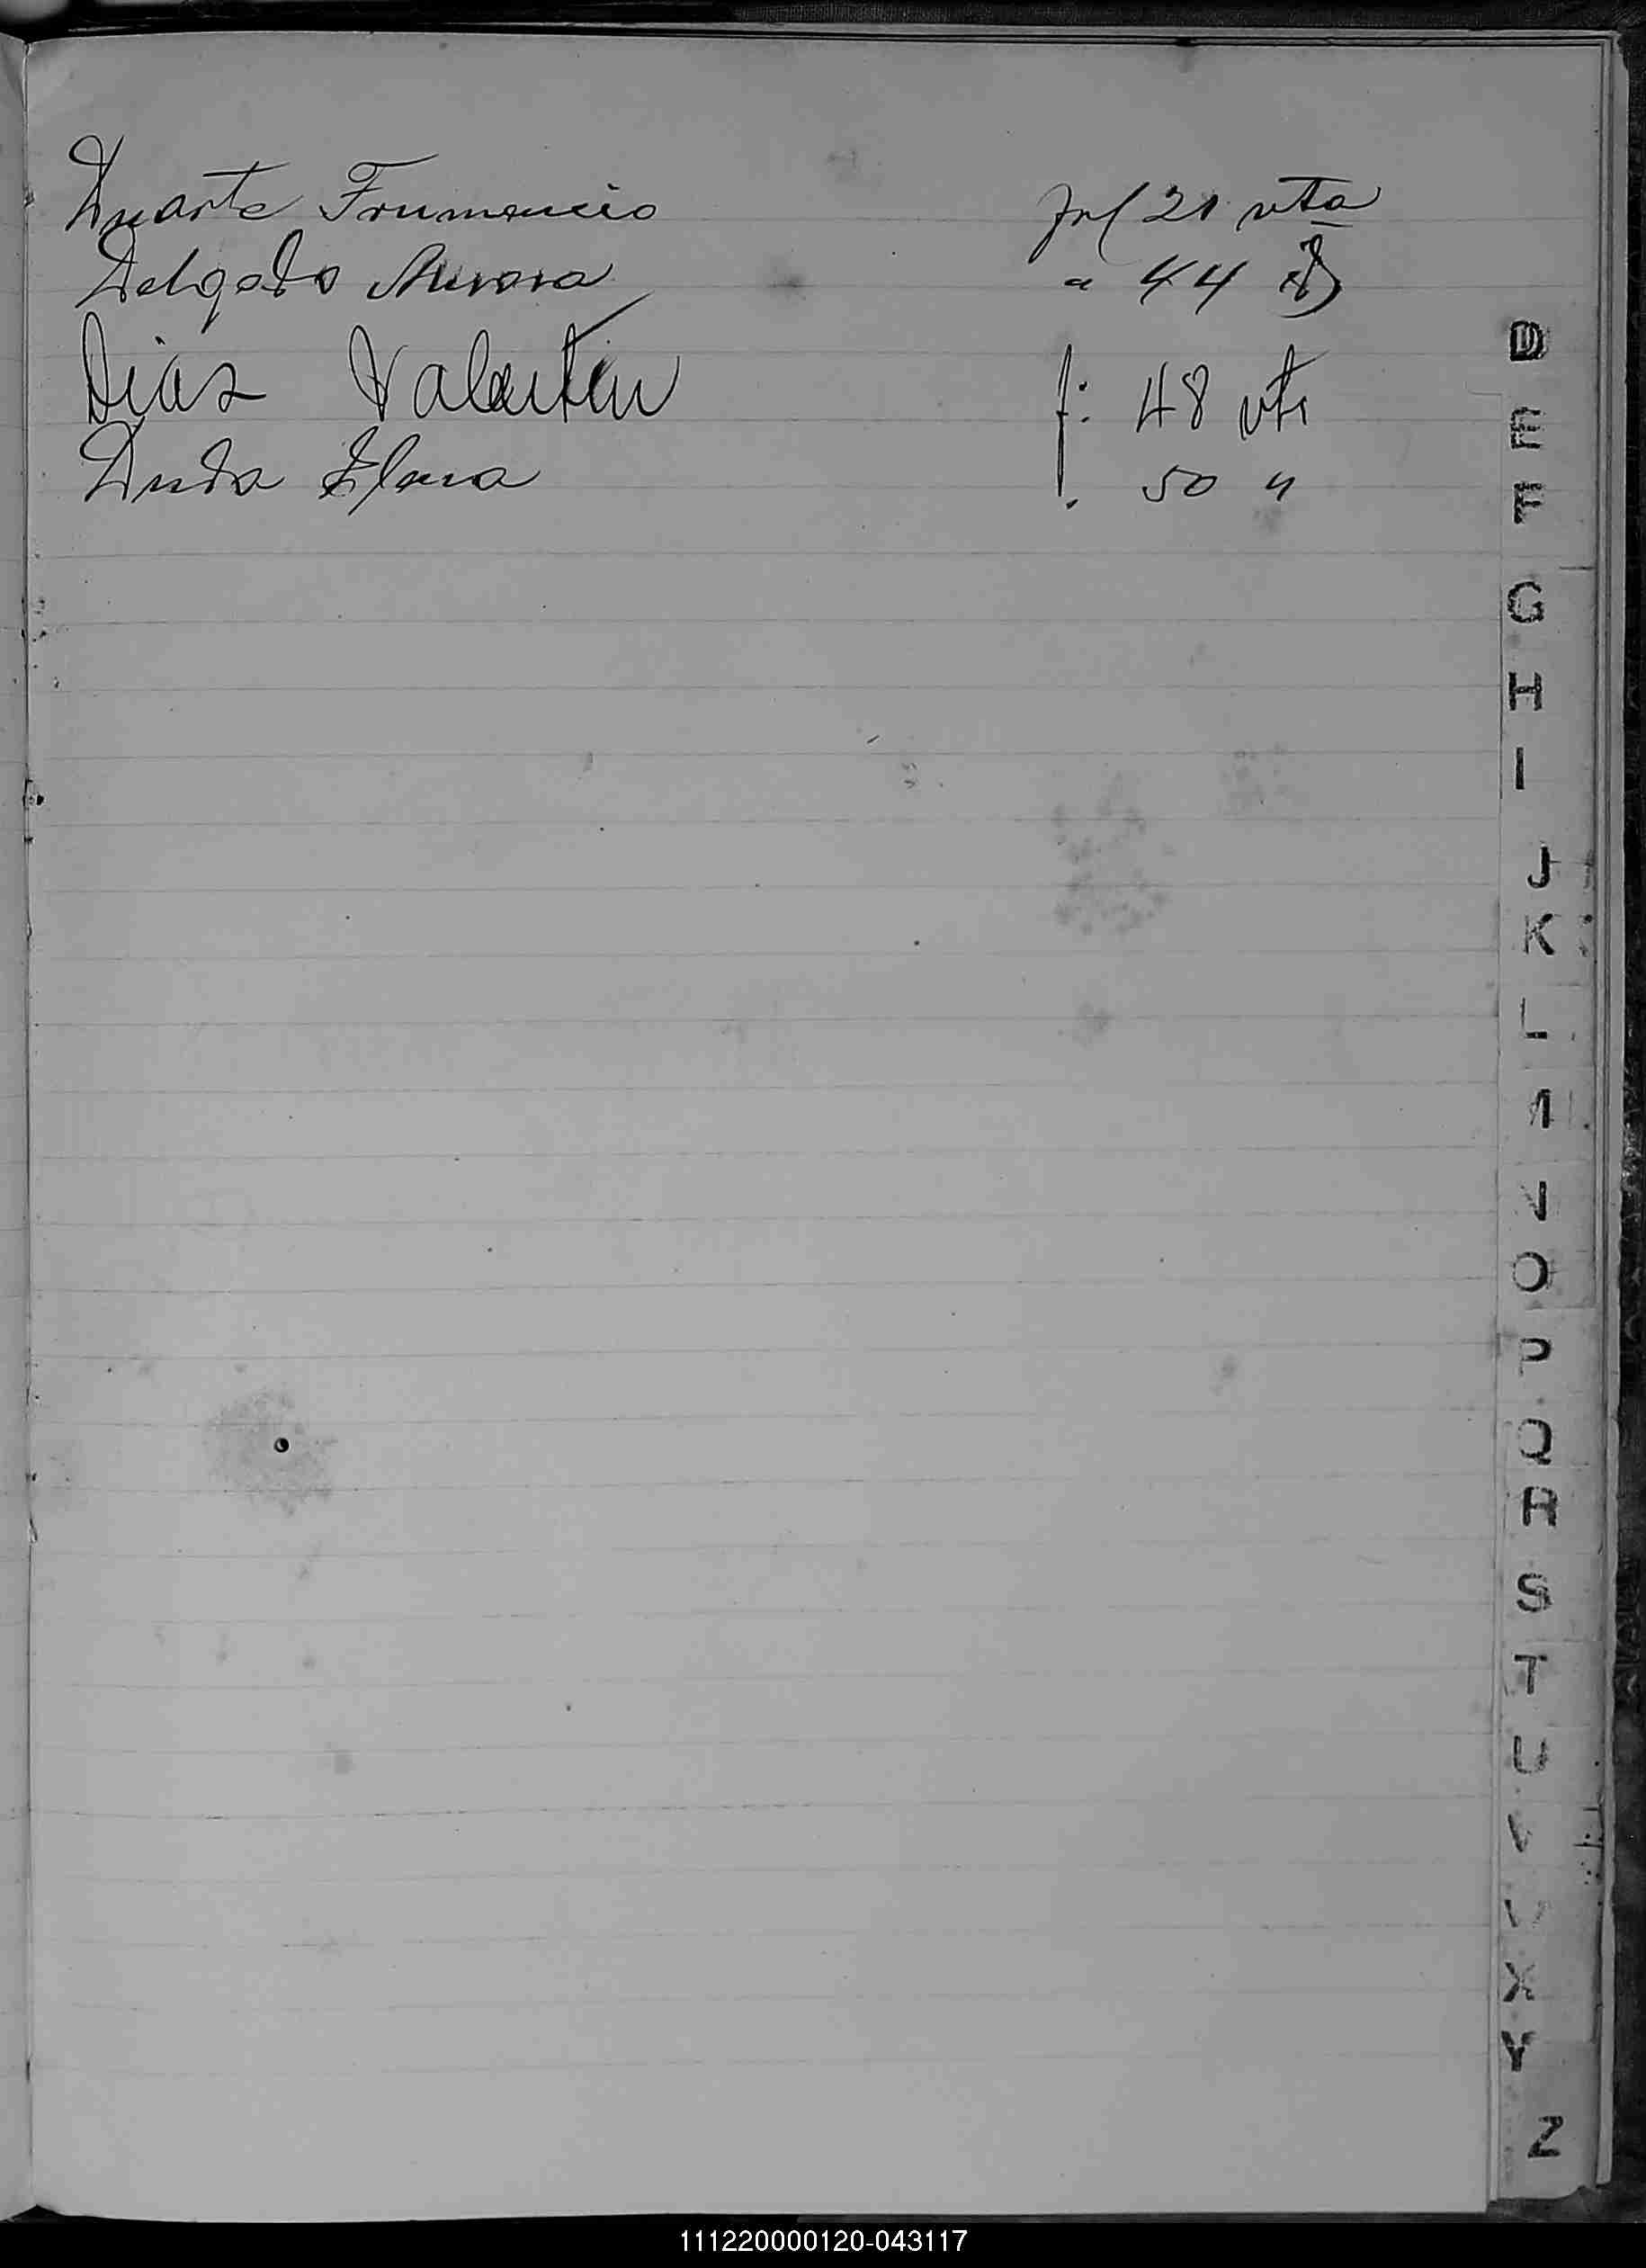 Duarte Frumencio fol 21 vta
Delgado Aurora " 44
Dias Valentin f: 48 vta
Duda Elena f. 50 "
D
E
F
G
H
I
J
K
L
M
N
O
P
Q
R
S
T
U
V
X
Y
Z
111220000120-043117